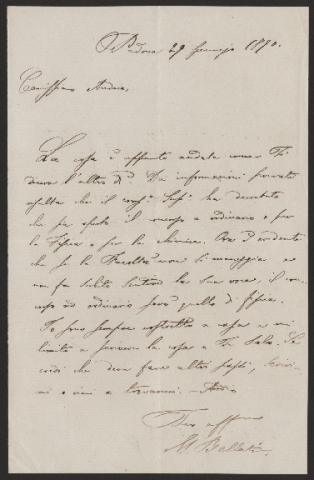 Padova 29 gennajo 1890.
Carissimo Andrea,
La cosa è affatto andata come Ti
dicevo l'altro dì. Da informazioni private
risulta che il Cons. Sup. ha decretato
che sia aperto il concorso a ordinario e per
la Fisica e per la chimica. Ora è evidente
che se la Facoltà non si maneggia, e
non fa subito sentire la sua voce, il con-
corso ad ordinario sarà quello di fisica.
Io sono sempre costretto a casa e mi
limito a scrivere la cosa a Te solo. Se
credi che devo fare altri passi, scrivi-
mi o vieni a trovarmi. — Addio
Tuo aff.mo
M Bellati